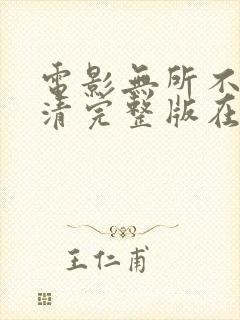 電影無所不
清完整版在
王仁甫